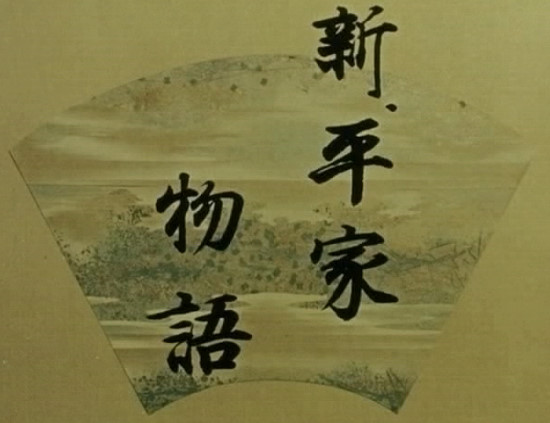 新・平家
物語